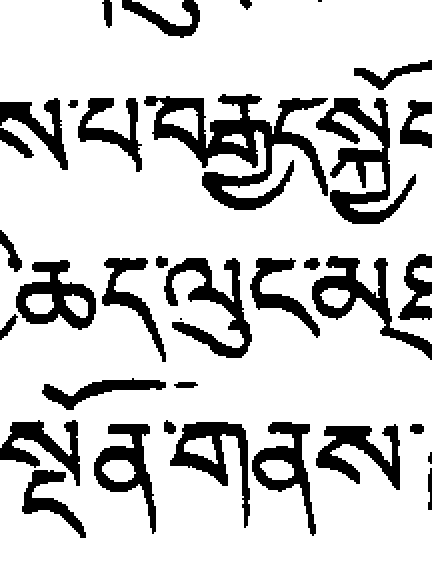 ས་པ་བརྒྱད་སྐྱོ
ཆད་ལུང་མ
སྔོན་གནས་